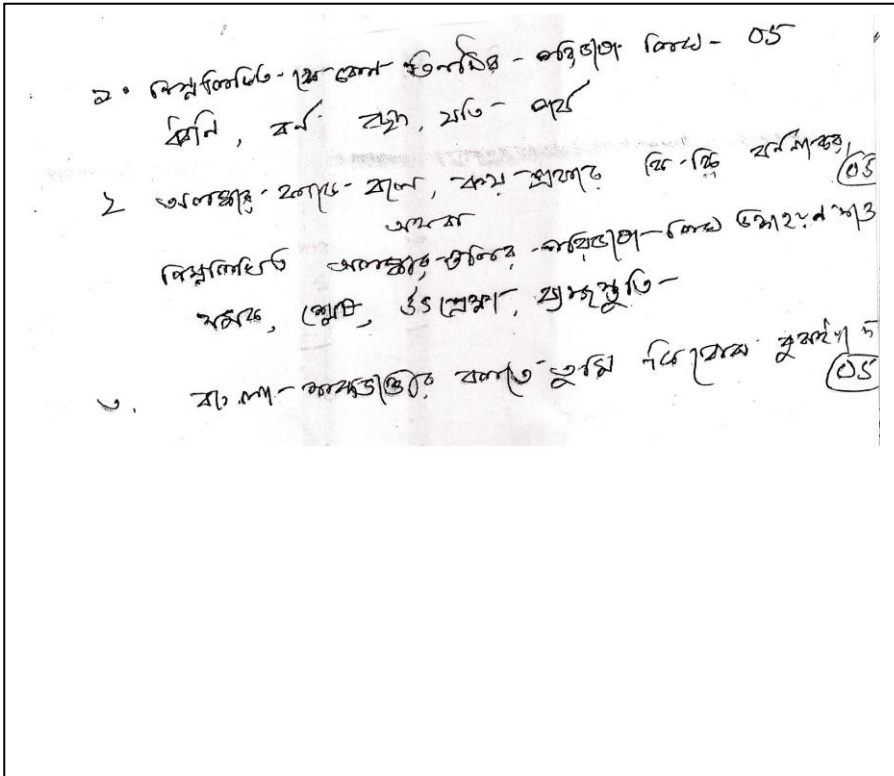 ১. নিম্নলিখিত যে কোন তিনটির পরিভাষা লিখ - 05
ধ্বনি, বর্ণ, যতি - পর্ব
২ অলঙ্কার কাকে বলে, কয় প্রকার কি-কি বর্ণনা কর, 05
অথবা
নিম্নলিখিত অলঙ্কার গুলির পরিভাষা লিখ উদাহরন দাও
যমক, শ্লেষ, উৎপ্রেক্ষা, ব্যাজস্তুতি -
৩. বাংলা শব্দভাণ্ডার বলতে তুমি কি বোঝ বুঝাই দাও 05